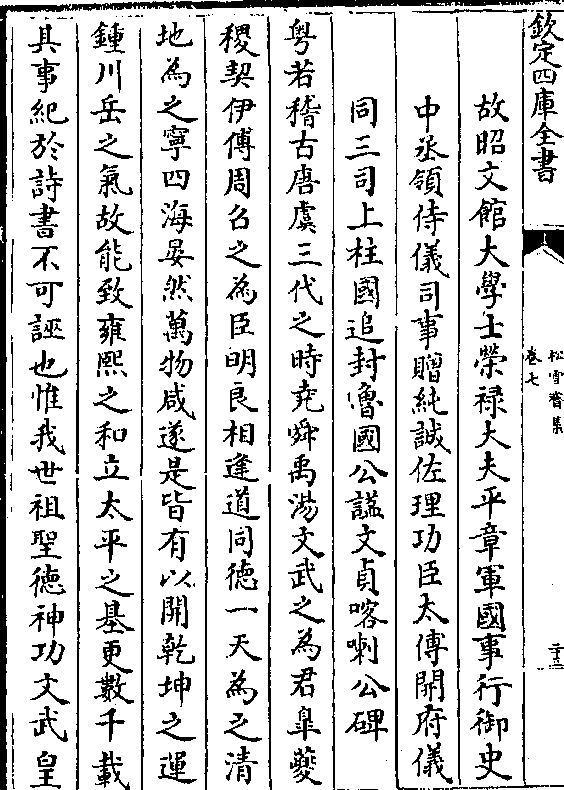 欽定四庫全書
松雪齋集
卷七
二十三
故昭文館大學士榮祿大夫平章軍國事行御史
中丞領侍儀司事贈純誠佐理功臣太傅開府儀
同三司上柱國追封魯國公諡文貞喀喇公碑
粵若稽古唐虞三代之時堯舜禹湯文武之為君臯夔
稷契伊傅周召之為臣明良相逢道同德一天為之清
地為之寧四海晏然萬物咸遂是皆有以開乾坤之運
鍾川岳之氣故能致雍熙之和立太平之基更數千載
其事紀於詩書不可誣也惟我世祖聖德神功文武皇